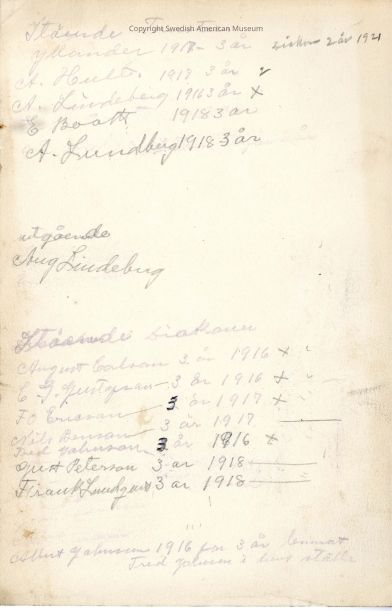 Copyright Swedish American Museum
Stående
1918 - 3 år 2 år 1921
A. Hult. 1918 3 år
A. Lindeberg 1918 3 år x
E Boatt 1918 3 år
A. Lundberg 1918 3 år
utgående
Aug Lindeberg
Stående diakoner
August Carlson 3 år 1916 x
C G. Gustafson - 3 år 1916 x
F O Ericson 3 år 1917 x
Nils Benson 3 år 1917
Fred Johnson 3 år 1916 x
Gust Peterson 3 ar 1918
Frank Lundgren 3 ar 1918
Albert Johnson 1916 for 3 år
Fred Johnson i hans ställe